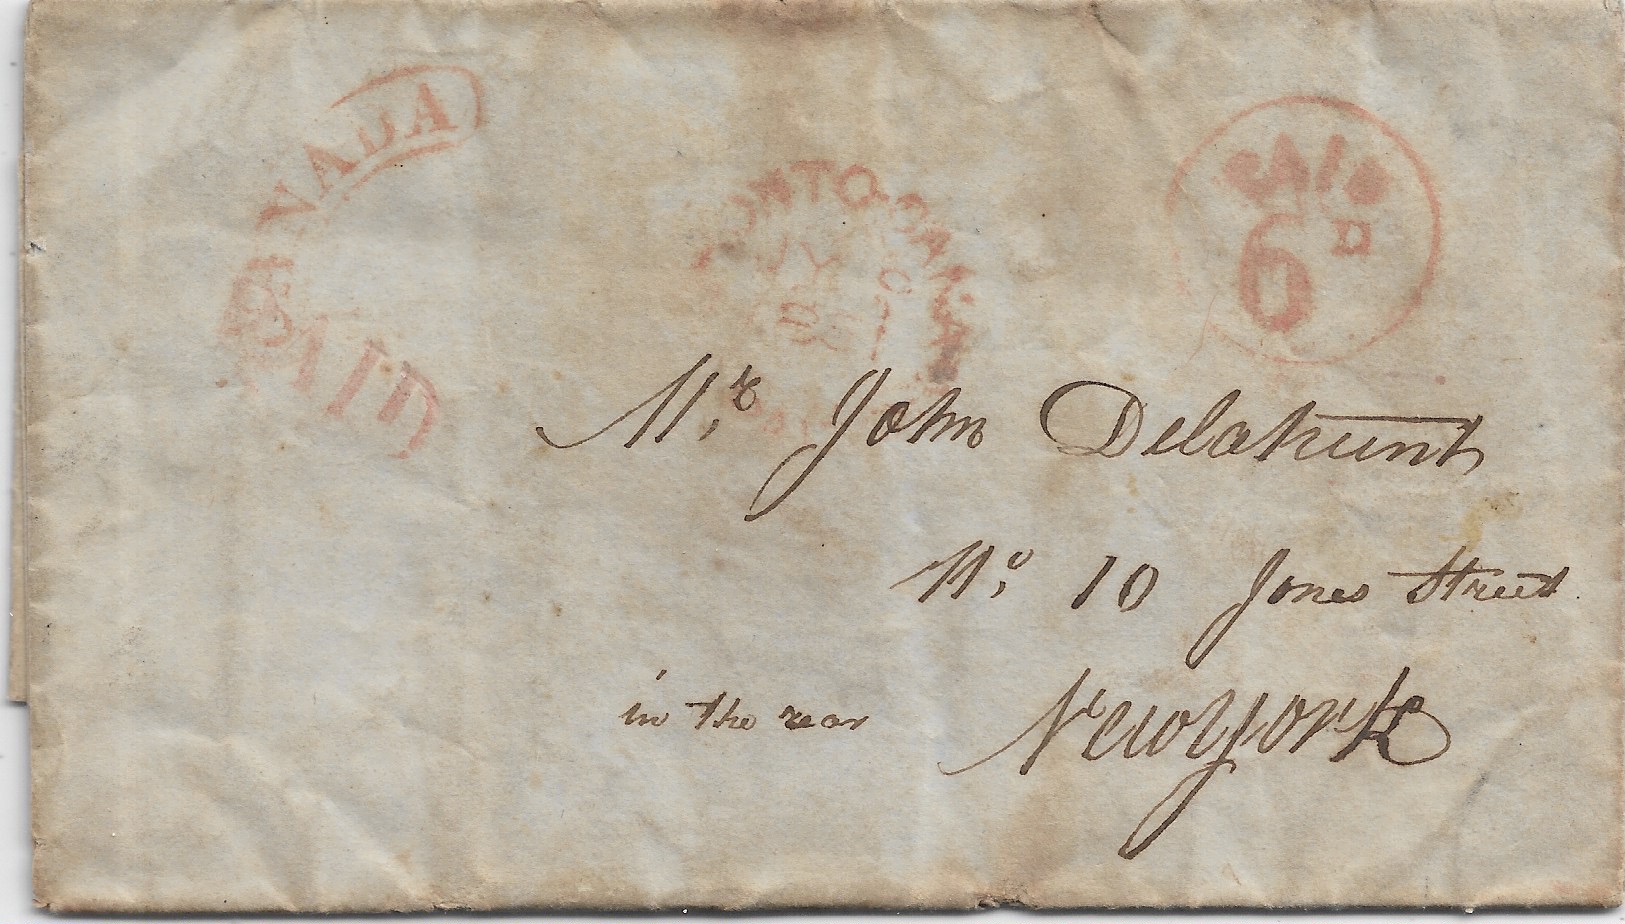 CANADA
PAID
TORONTO. CANADA
PAID
6D
Mr. John Delahunt
No. 10 Jones Street
in the rear New York